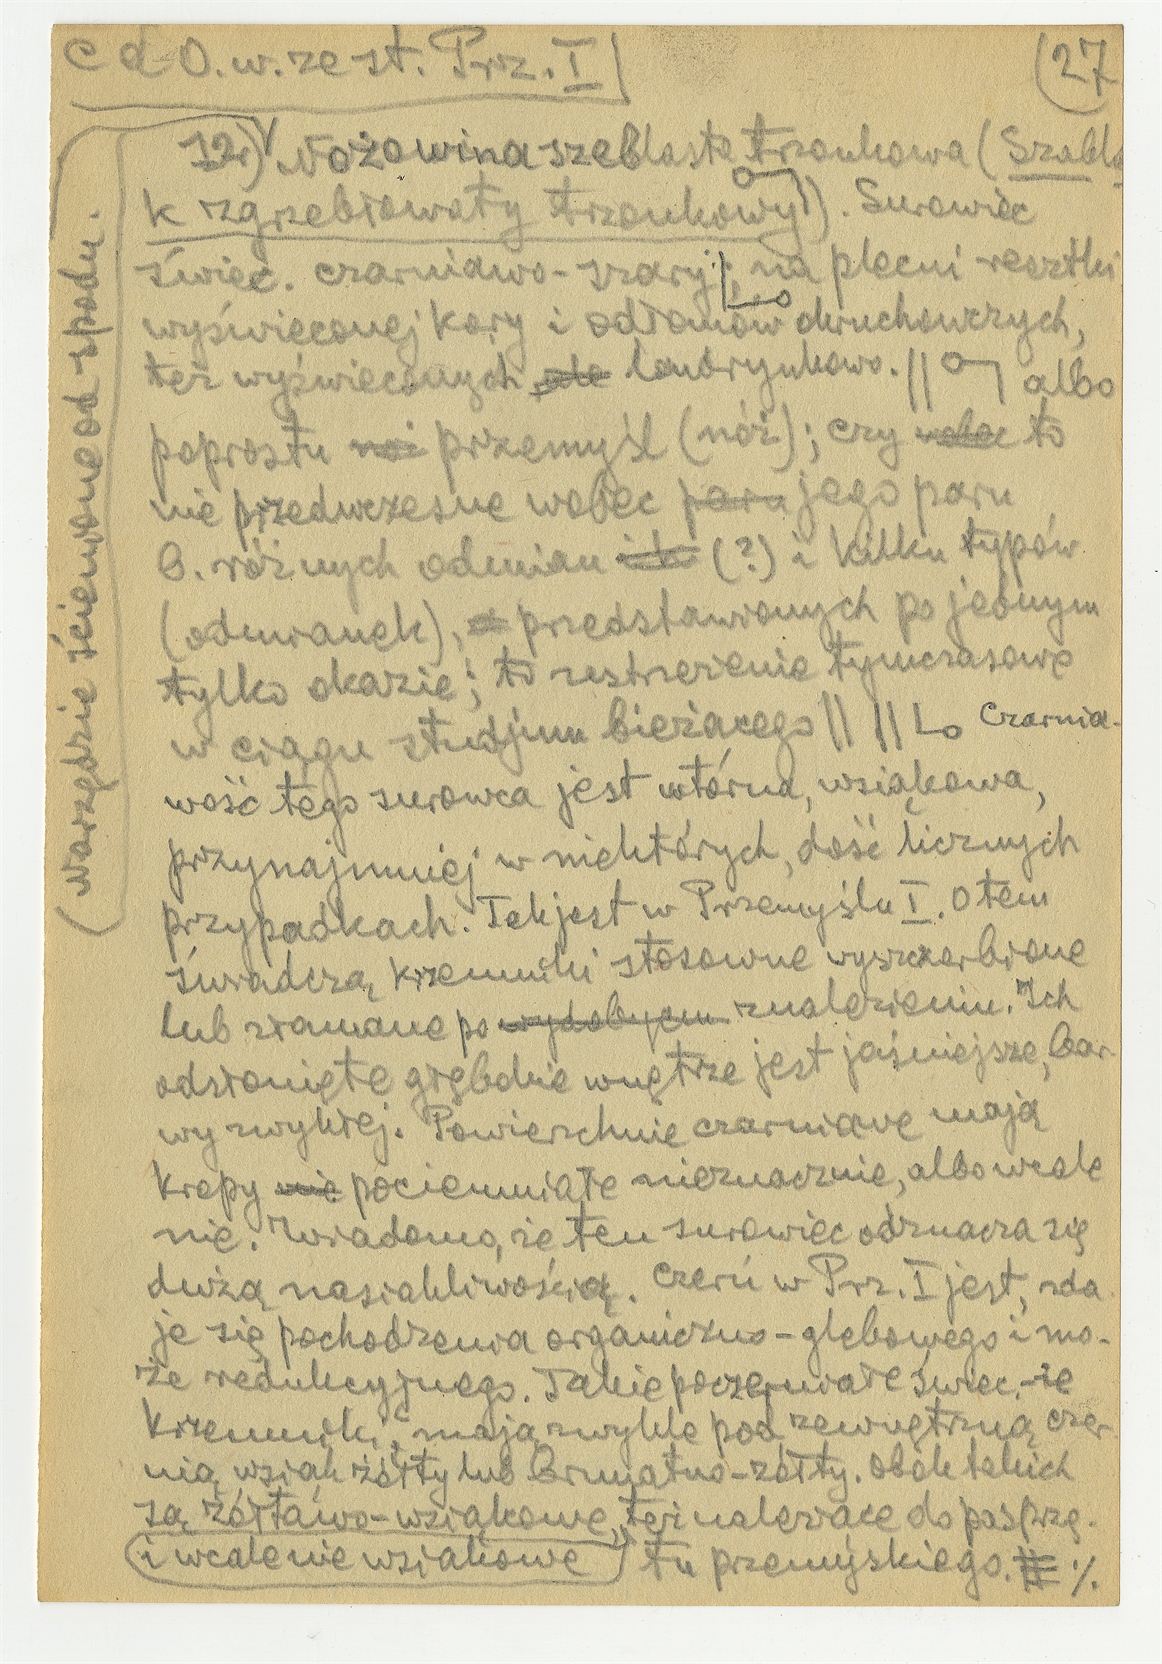 c d O. w. ze st. Prz. I
(27
12.) Nożowina szablasta trzonkowa (Szabla
k zgrzebłowaty trzonkowy). Surowiec
świec. czarniawo-szary; na plecni resztki
wyświeconej kory i odłomów druchowczych,
też wyświeconych ale landrynkowo. || albo
poprostu noż przemyśl (nóż); czy to
nie przedwczesne wobec paru jego paru
b. różnych odmian (?) i kilku typów
(odmianek), przedstawionych po jednym
tylko okazie; to zestrzeżenie tymczasowe
w ciągu studjum bieżącego || || Czarnia-
wość tego surowca jest wtórna, wsiąkowa,
przynajmniej w niektórych, dość licznych
przypadkach. Tak jest w Przemyślu I. O tem
świadczą krzemyki stosowne wyszczerbione
lub złamane po wydobyciu znalezieniu. Ich
odsłonięte głębokie wnętrze jest jaśniejsze, bar-
wy zwykłej. Powierzchnie czarniawe mają
krepy nie pociemniałe nieznacznie, albo wcale
nie. Wiadomo, że ten surowiec odznacza się
dużą nasiąkliwością. Czerń w Prz. I jest, zda-
je się pochodzenia organiczno-glebowego i mo-
że redukcyjnego. Takie poczerniałe świec.-ie
krzemyki, mają zwykle pod zewnętrzną czer-
nią wsiąk żółty lub brunatno-żółty. Obok takich
są żółtawo-wsiąkowe, też należące do pos prze-
i wcale nie wsiąkowe tu przemyskiego. ·/.
(Narzędzie ścienione od spodu.